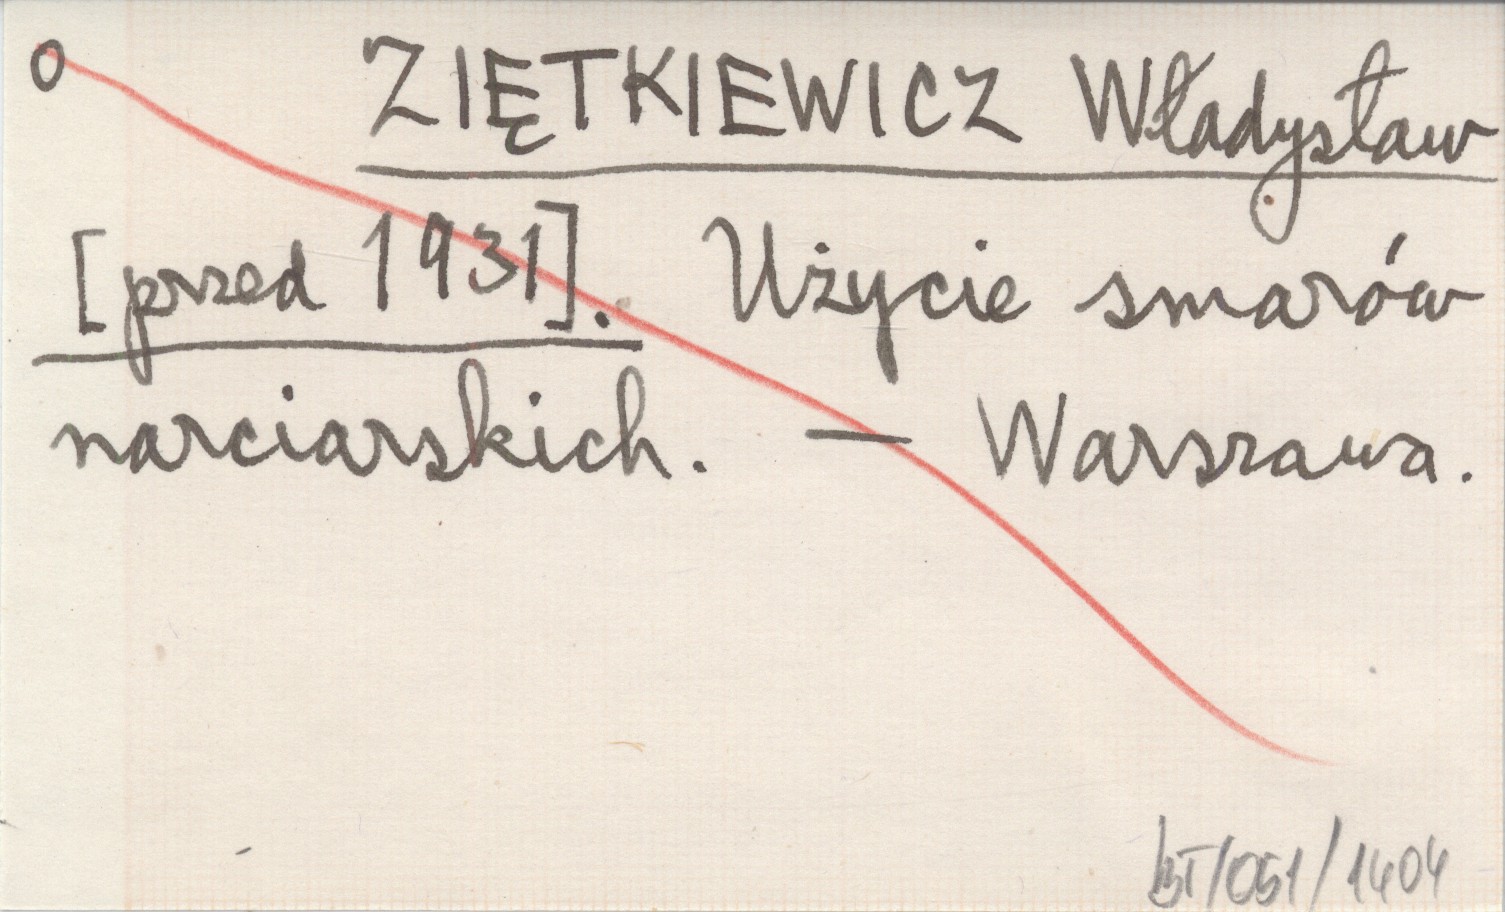 O ZIĘTKIEWICZ Władysław
[przed 1931]. Użycie smarów
narciarskich. — Warszawa.
BT/051/1404